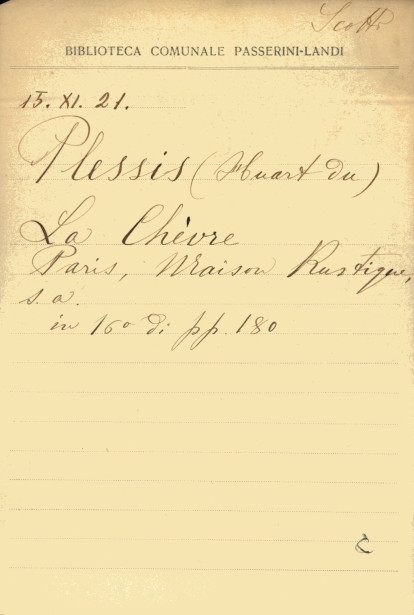 Scotti
BIBLIOTECA COMUNALE PASSERINI-LANDI
15. XI. 21.
Plessis (Huart du)
La Chèvre
Paris, Maison Rustique,
s. a.
in 16º di pp. 180